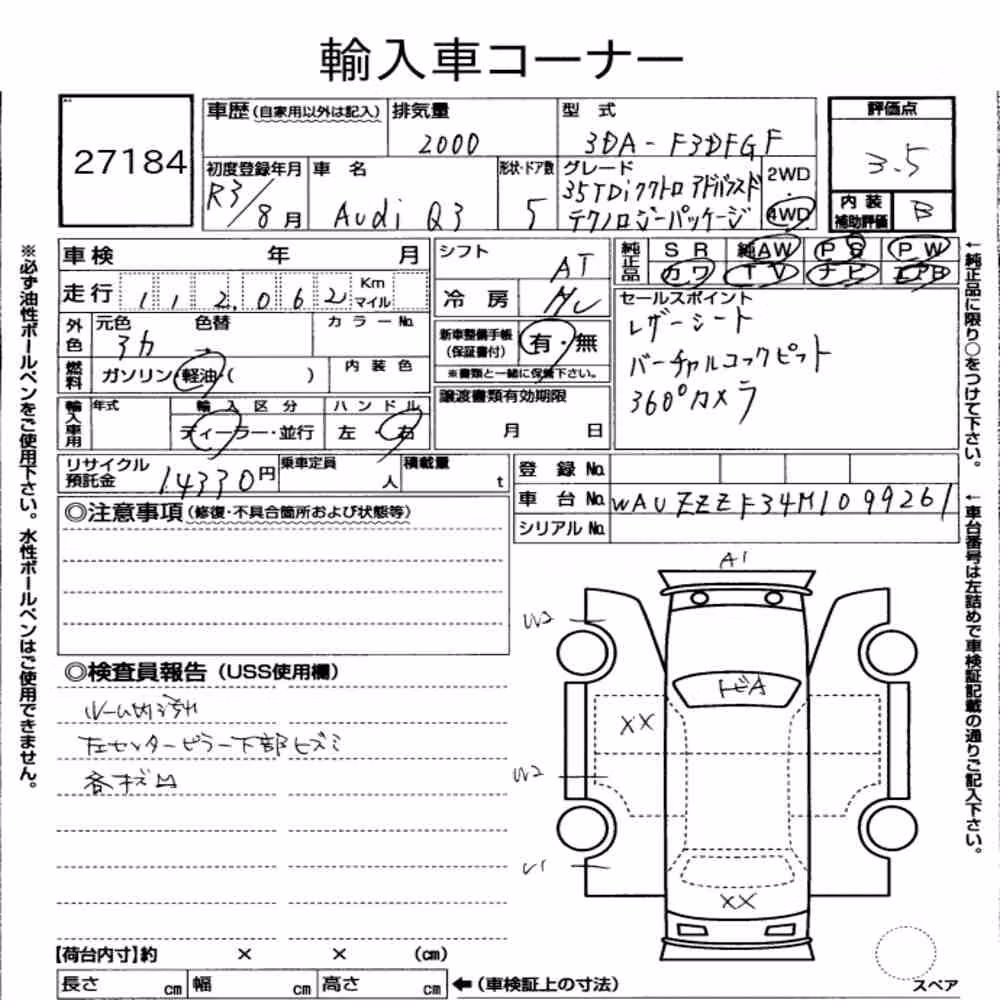 輸入車コーナー
27184
車歴(自家用以外は記入) 排気量 2000 型式 3DA-F3DFGF
評価点 3.5
内装補助評価 B
初度登録年月 R3/8月 車名 Audi Q3 形状・ドア数 5 グレード 35TDiクワトロ アドバンスド テクノロジーパッケージ 2WD・4WD
車検 年 月
走行 112,062 Km マイル
外色 元色 アカ 色替 → カラーNo.
燃料 ガソリン・軽油・( ) 内装色
輸入車用 年式 輸入区分 ディーラー・並行 ハンドル 左・右
シフト AT
冷房
新車整備手帳(保証書付) 有・無
※書類と一緒に保管下さい。
譲渡書類有効期限 月 日
純正品 SR 純AW PS PW
カワ TV ナビ エアB
セールスポイント
レザーシート
バーチャルコックピット
360°カメラ
リサイクル預託金 14330円 乗車定員 人 積載量 t
登録No.
車台No. WAUZZZF34M1099261
シリアルNo.
◎注意事項(修復・不具合箇所および状態等)
◎検査員報告(USS使用欄)
ルーム内汚れ
左センターピラー下部ヒズミ
各キズ凹
【荷台内寸】約 × × (cm)
長さ cm 幅 cm 高さ cm ←(車検証上の寸法)
A1
W2
トビA
XX
W2
U1
XX
スペア
※必ず油性ボールペンをご使用下さい。水性ボールペンはご使用できません。
←純正品に限り○をつけて下さい。
←車台番号は左詰めで車検証記載の通りご記入下さい。